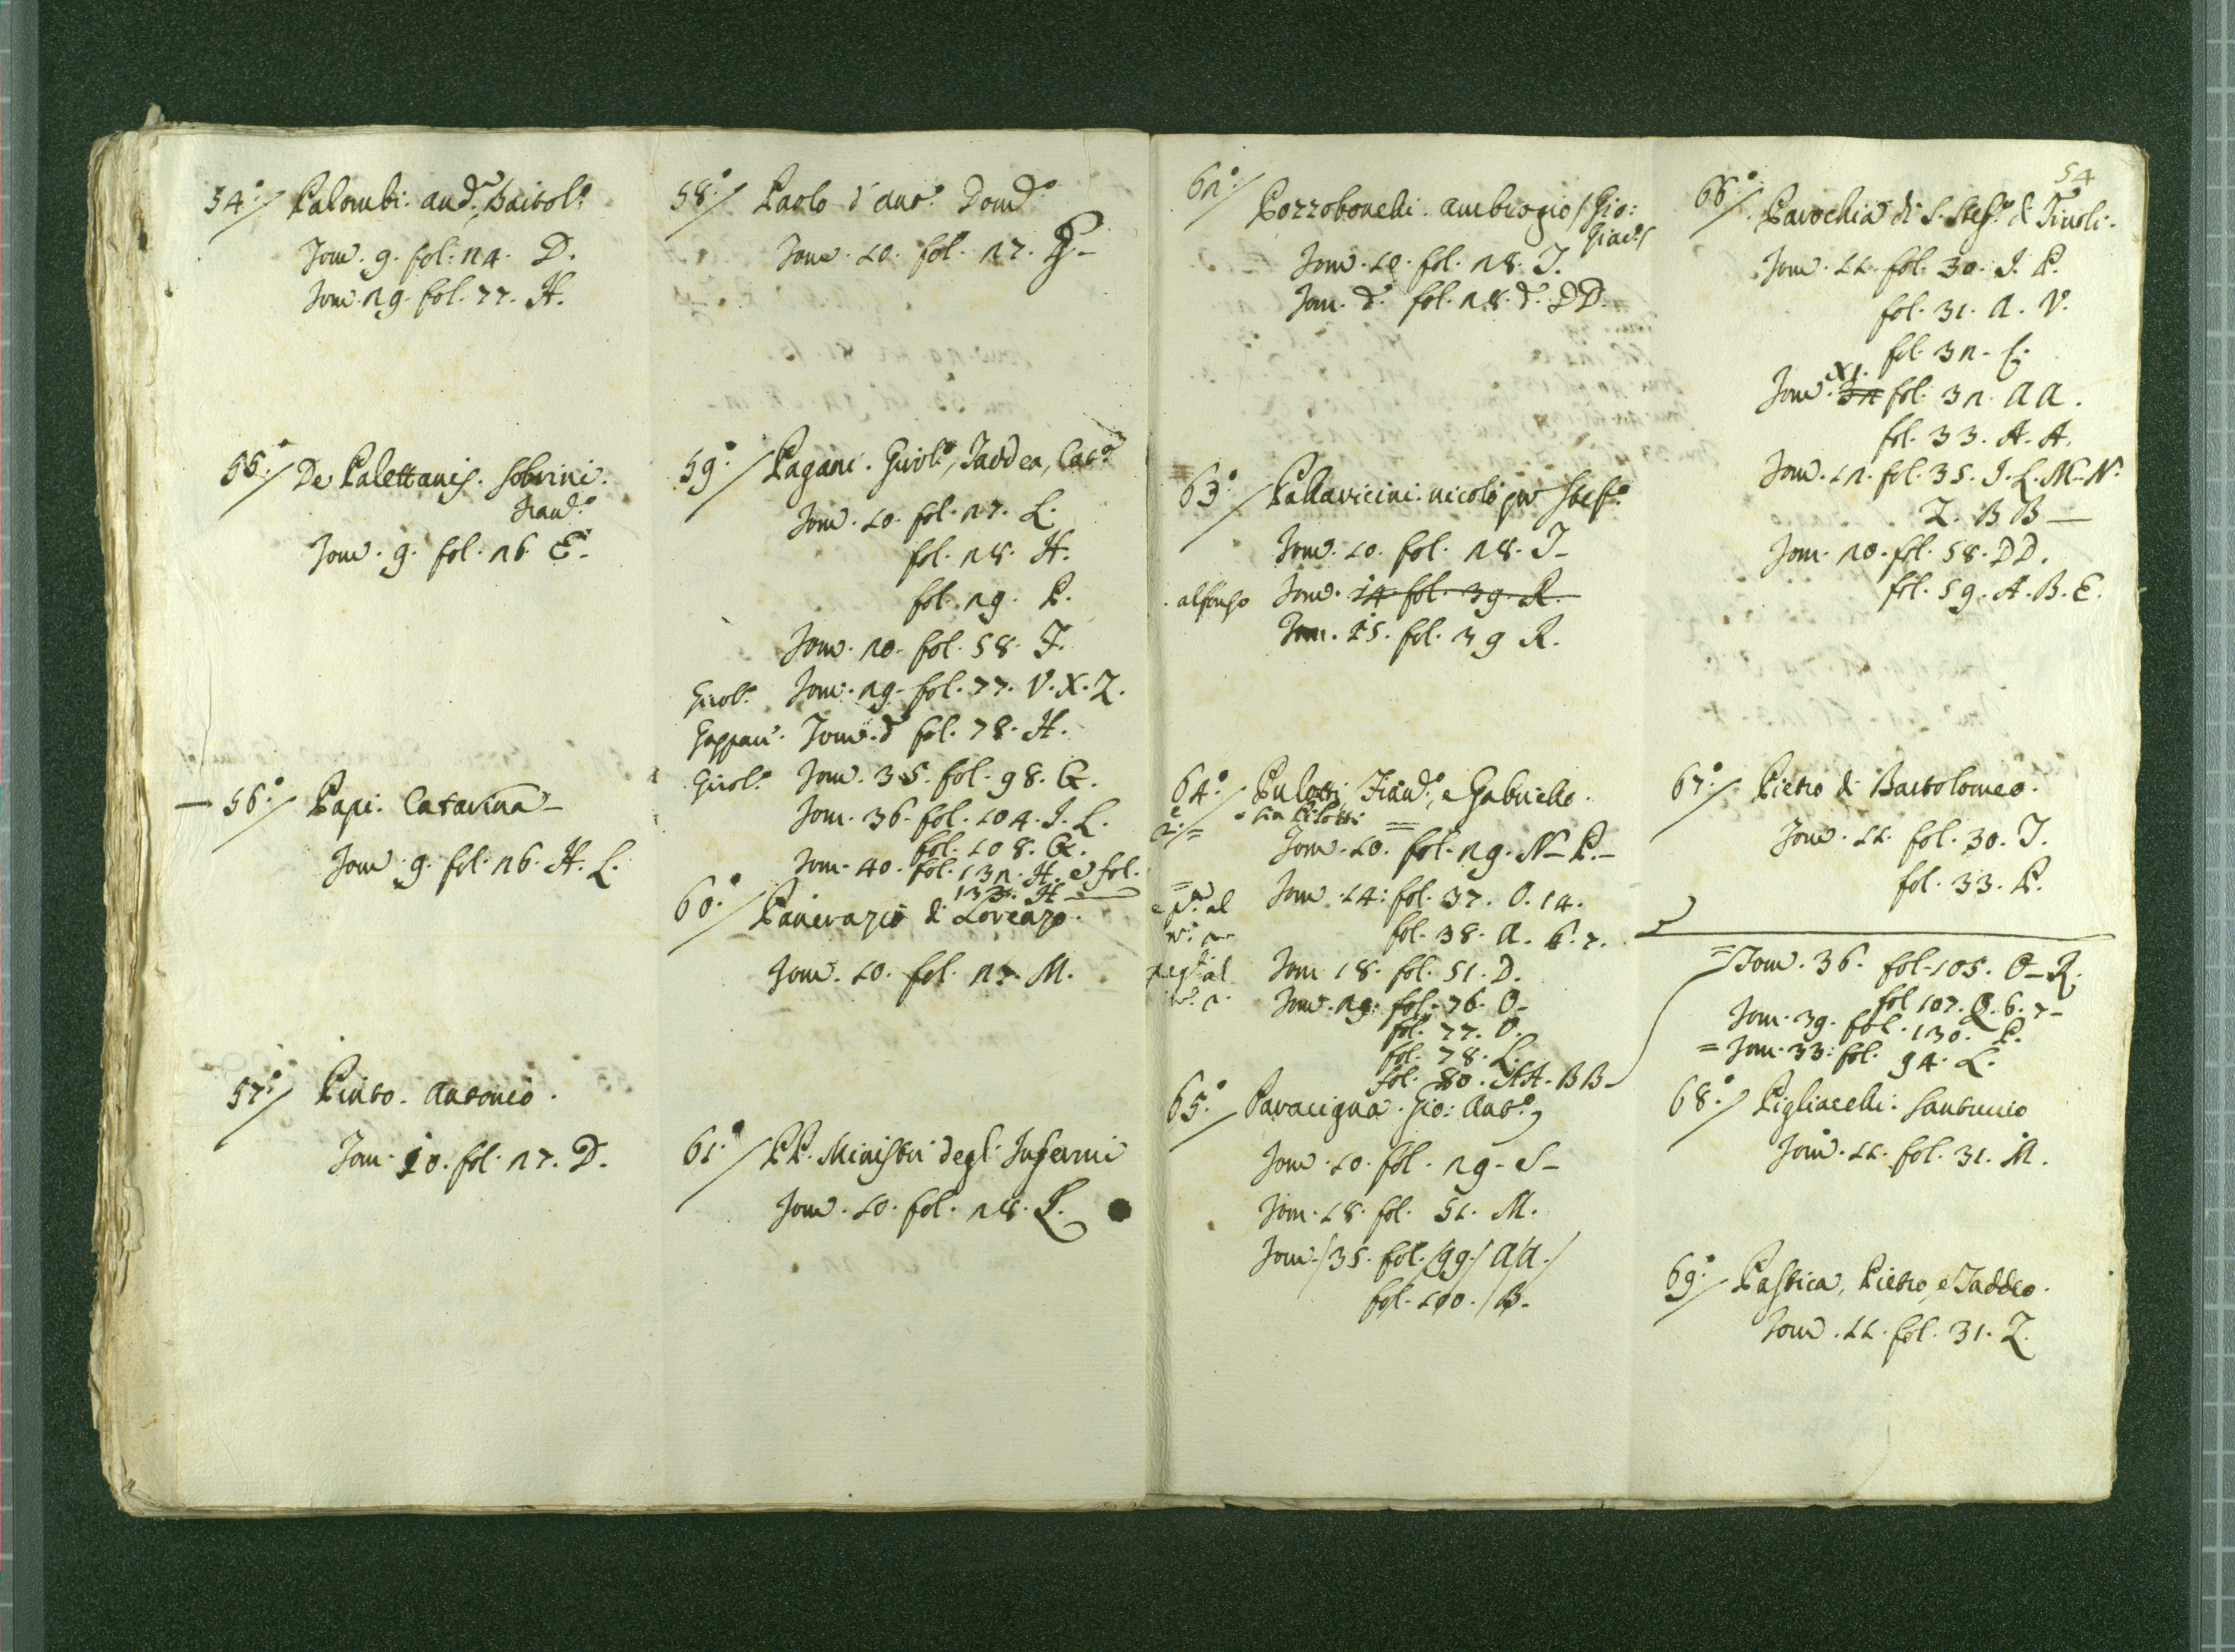 54.º/ Palombi. And.ª, Bartol.º
Tom. 9. fol. 24. D.
Tom. 29. fol. 77. H.
55.º/ De Palettanis. Sobrini.
Fran.º
Tom. 9. fol. 26. E.
56.º/ Papi. Catarina
Tom. 9. fol. 26. H. L.
57.º/ Pinto. Antonio.
Tom. 10. fol. 27. D.
58.º/ Paolo d'Ant.º Dom.º
Tom. 10. fol. 27.
59.º/ Pagani. Girol.º, Taddea, Cat.ª
Tom. 10. fol. 27. L.
fol. 28. H.
fol. 29. P.
Tom. 20. fol. 58. F.
Girol.º Tom. 29. fol. 77. V. X. Z.
Gaspari. Tom. d.º fol. 78. H.
Girol.º Tom. 35. fol. 98. G.
Tom. 36. fol. 104. I. L.
fol. 108. G.
Tom. 40. fol. 132. H. e fol.
133. H
60.º/ Pancrazio di Lorenzo.
Tom. 10. fol. 27. M.
61.º/ PP. Ministri degl'Infermi
Tom. 10. fol. 28. P.
54
62.º/ Pozzobonelli. Ambrogio / Gio:
Giac.º/
Tom. 10. fol. 28. I.
Tom. d.º fol. 28. d.º DD.
63.º/ Pallavicini. Nicolò per Stef.º
Tom. 10. fol. 28. I
Alfonso Tom. 14. fol. 39. R.
Tom. 15. fol. 39 R.
64.º/ Pulotti, Fran.º, e Gabriele.
o sia Pilotti
Tom. 10. fol. 29. N. P.
Tom. 14. fol. 37. O. 14.
fol. 38. A. 6. 7.
Tom. 18. fol. 51. D.
Tom. 29. fol. 76. O
fol. 77. O.
fol. 78. L.
fol. 80. AA. BB
65.º/ Paracigna. Gio: Ant.º
Tom. 10. fol. 29. S
Tom. 18. fol. 51. M.
Tom. / 35. fol. / 99. / A/A. /
fol. 100. / B.
66.º/ Parochia di S. Stef.º di Tivoli.
Tom. 11. fol. 30. I. P.
fol. 31. A. V.
fol. 32. E.
XI.
Tom. 32 fol. 32. AA.
fol. 33. A. A.
Tom. 12. fol. 35. I. L. M. N.
Z. BB
Tom. 20. fol. 58. DD.
fol. 59. A. B. E.
67.º/ Pietro di Bartolomeo.
Tom. 11. fol. 30. I.
fol. 33. P.
= Tom. 36. fol. 105. O R.
fol. 107. Q. 6. 7
Tom. 39. fol. 130. P.
= Tom. 33. fol. 94. L.
68.º/ Pigliacelli. Santuccio
Tom. 11. fol. 31. M.
69.º/ Pastica, Pietro, e Taddeo.
Tom. 11. fol. 31. Z.